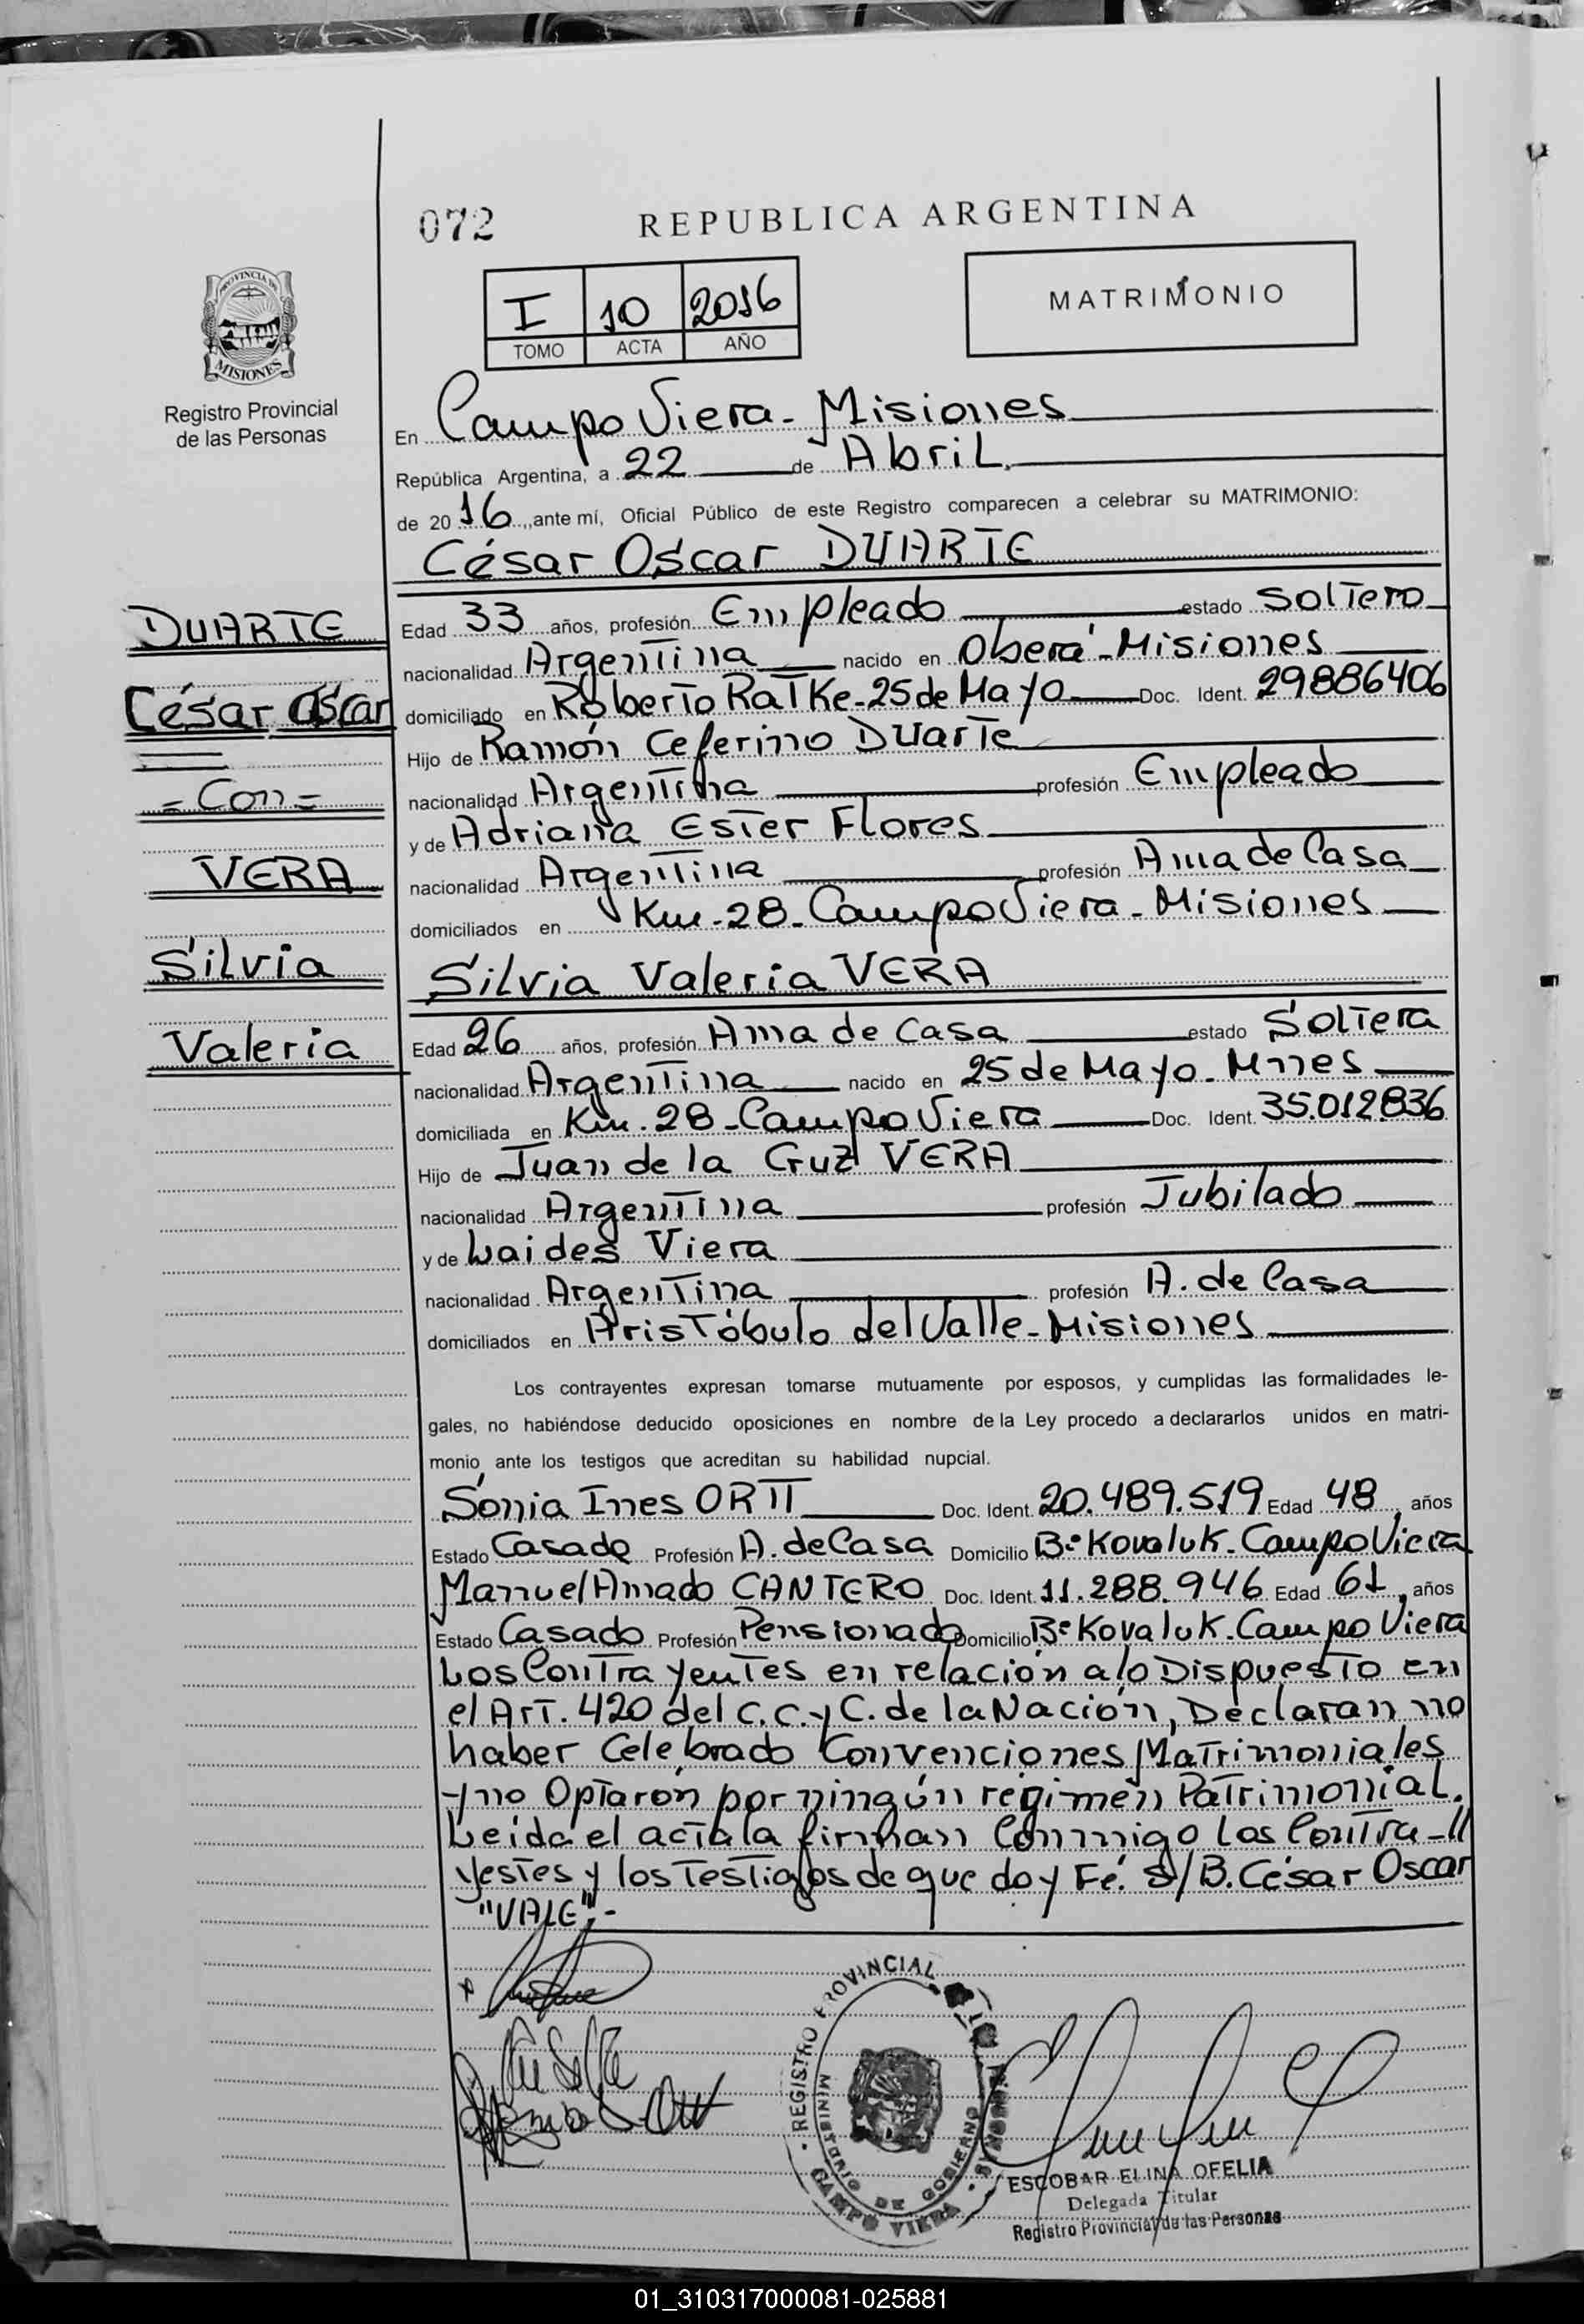 072
REPUBLICA ARGENTINA
I 10 2016
TOMO ACTA AÑO
MATRIMONIO
PROVINCIA DE
MISIONES
Registro Provincial
de las Personas
En Campo Viera - Misiones
República Argentina, a 22 de Abril.
de 2016, ante mí, Oficial Público de este Registro comparecen a celebrar su MATRIMONIO:
César Oscar DUARTE
DUARTE
César Oscar
= Con =
VERA
Silvia
Valeria
Edad 33 años, profesión Empleado estado Soltero
nacionalidad Argentina nacido en Oberá - Misiones
domiciliado en Roberto Ratke - 25 de Mayo Doc. Ident. 29886406
Hijo de Ramón Ceferino Duarte
nacionalidad Argentina profesión Empleado
y de Adriana Ester Flores
nacionalidad Argentina profesión Ama de Casa
domiciliados en Km - 28 - Campo Viera - Misiones
Silvia Valeria VERA
Edad 26 años, profesión Ama de Casa estado Soltera
nacionalidad Argentina nacido en 25 de Mayo - Mnes
domiciliada en Km. 28 - Campo Viera Doc. Ident. 35.012.836
Hijo de Juan de la Cruz VERA
nacionalidad Argentina profesión Jubilado
y de Laides Viera
nacionalidad Argentina profesión A. de Casa
domiciliados en Aristóbulo del Valle - Misiones
Los contrayentes expresan tomarse mutuamente por esposos, y cumplidas las formalidades le-
gales, no habiéndose deducido oposiciones en nombre de la Ley procedo a declararlos unidos en matri-
monio ante los testigos que acreditan su habilidad nupcial.
Sonia Ines ORTT Doc. Ident. 20.489.519 Edad 48 años
Estado Casada Profesión A. de Casa Domicilio Bº Kovaluk. Campo Viera
Manuel Amado CANTERO Doc. Ident. 11.288.946 Edad 61, años
Estado Casado Profesión Pensionado Domicilio Bº Kovaluk. Campo Viera
Los Contrayentes en relación a lo Dispuesto en
el Art. 420 del C.C. y C. de la Nación, Declaran no
haber Celebrado Convenciones Matrimoniales
y no Optaron por ningún regimen Patrimonial.
Leida el acta la firman Conmigo Los Contra-//
yestes y los Testigos de que doy Fé. S/B. César Oscar
"VALE".-
REGISTRO PROVINCIAL DE LAS PERSONAS
MINISTERIO DE GOBIERNO
CAMPO VIERA
ESCOBAR ELINA OFELIA
Delegada Titular
Registro Provincial de las Personas
01_310317000081-025881